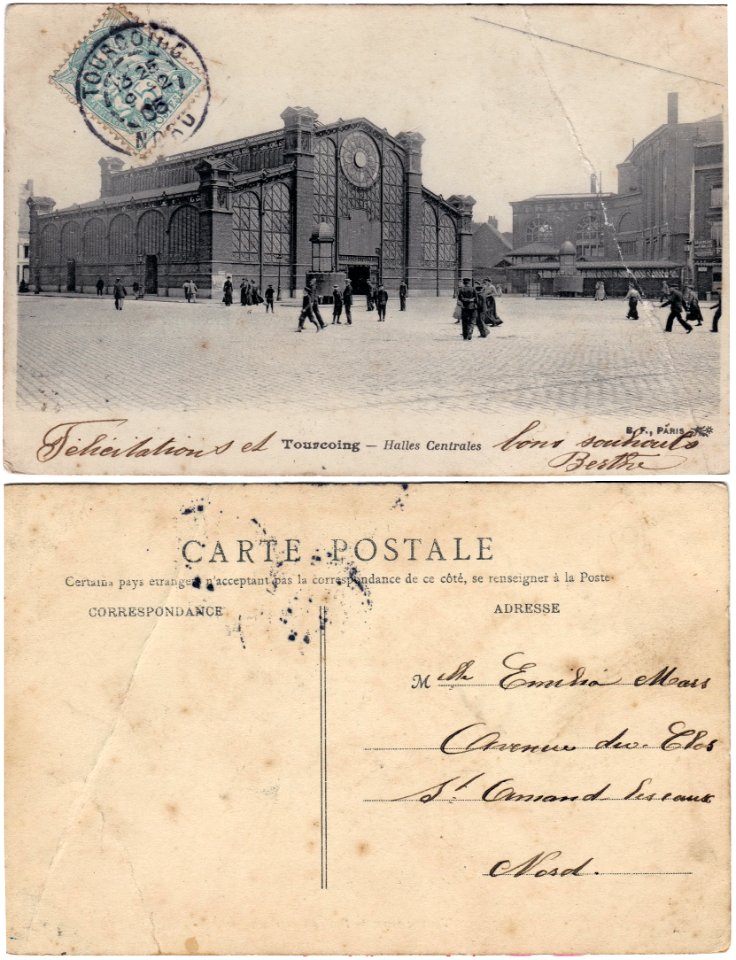 TOURCOING
05
NORD
B. F., PARIS
Félicitations et Tourcoing — Halles Centrales bons souhaits
Berthe
CARTE POSTALE
Certains pays étrangers n'acceptant pas la correspondance de ce côté, se renseigner à la Poste
CORRESPONDANCE
ADRESSE
Mlle Emilia Mars
Avenue du Clos
St Amand les eaux
Nord.